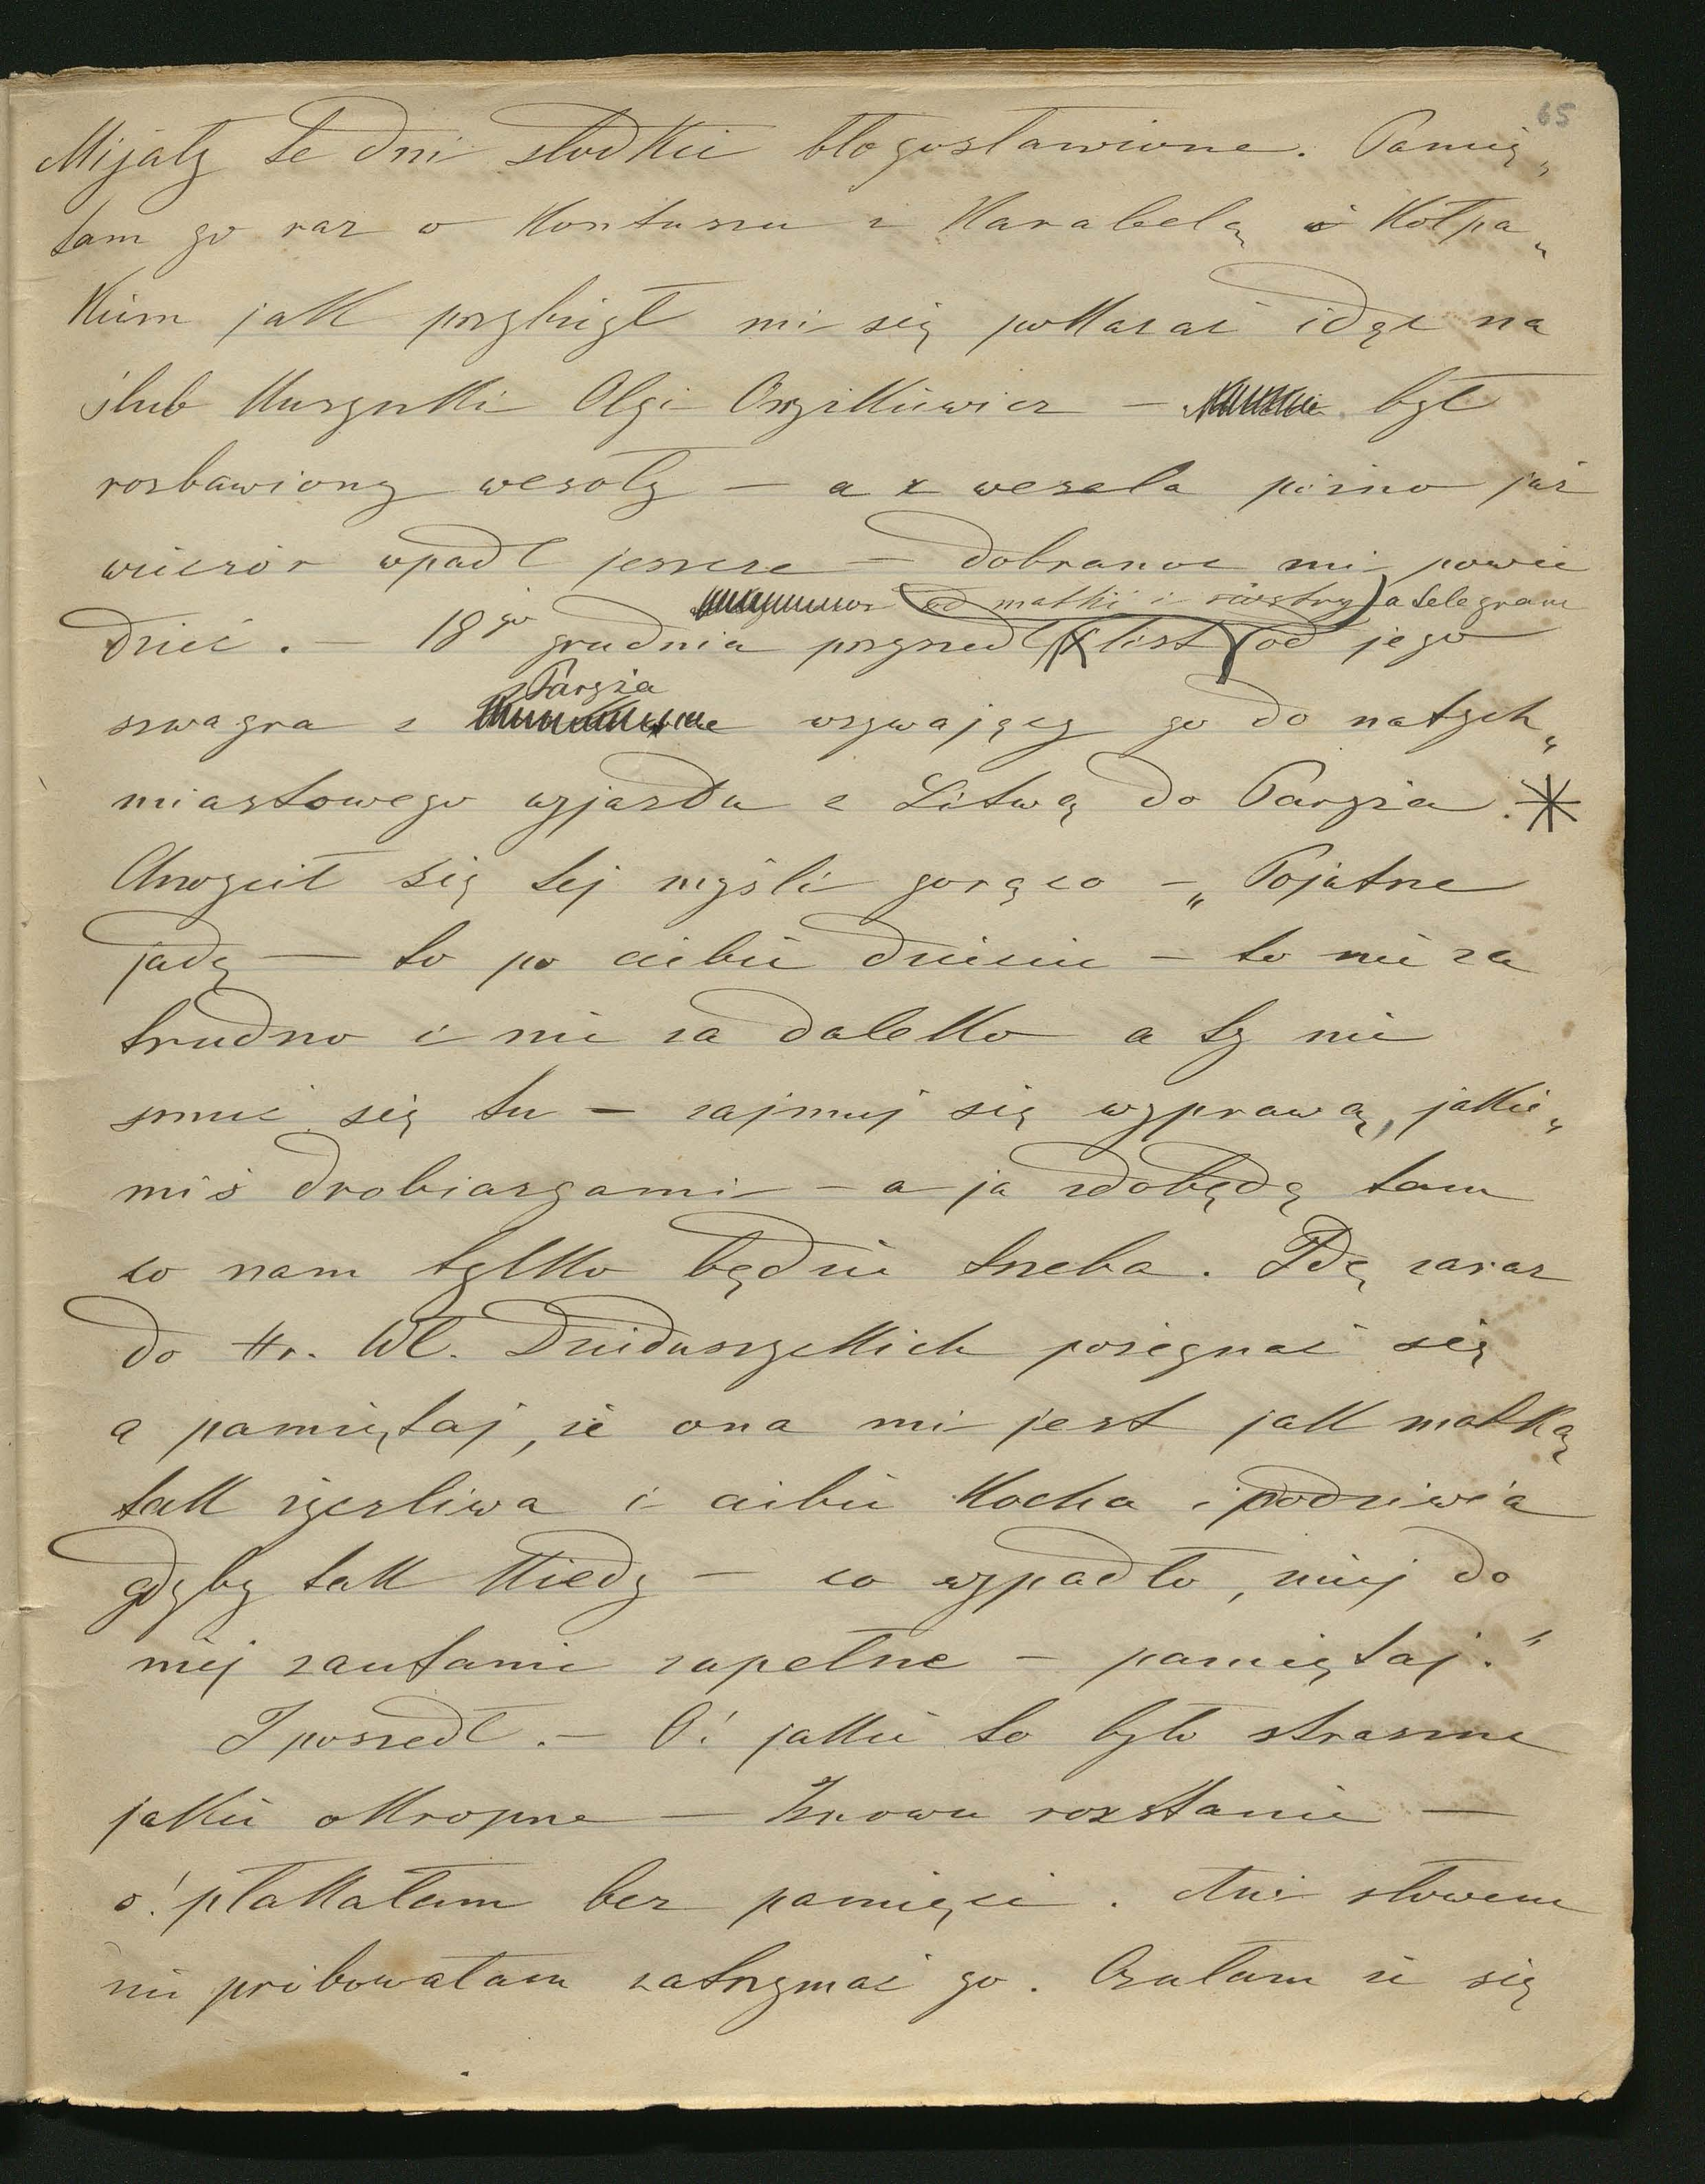 65
Mijały te dni słodkie błogosławione. Pamię„
tam go raz w Kontuszu z Karabelą i Kołpa„
kiem jak przybiegł mi się pokazać idąc na
ślub Kuzynki Olgi Onyszkiewicz – był
rozbawiony wesoły – a z wesela późno już
wieczór wpadł jeszcze – dobranoc mi powie
dzieć. – 18go grudnia przyszedł list (od matki i siostry) a telegram od jego
szwagra z Paryża wzywający go do natych„
miastowego wyjazdu z Litwą do Paryża. *
Chwycił się tej myśli gorąco – „Pojutrze
jadę – to po ciebie dziecie – to nie za
trudno i nie za daleko a ty nie
smuć się tu – zajmuj się wyprawą, jakie„
miś drobiazgami – a ja zdobędę tam
co nam tylko będzie trzeba. Idę zaraz
do Hr. Wł. Dzieduszyckich pożegnać się
a pamiętaj, że ona mi jest jak matką
tak życzliwa i ciebie kocha i podziwia
gdyby tak kiedy – co wypadło, miej do
niej zaufanie zupełne – pamiętaj."
I poszedł. – O! jakie to było straszne
jakie okropne – Znowu rozstanie –
o! płakałam bez pamięci. Ani słowem
nie próbowałam zatrzymać go. Czułam że się